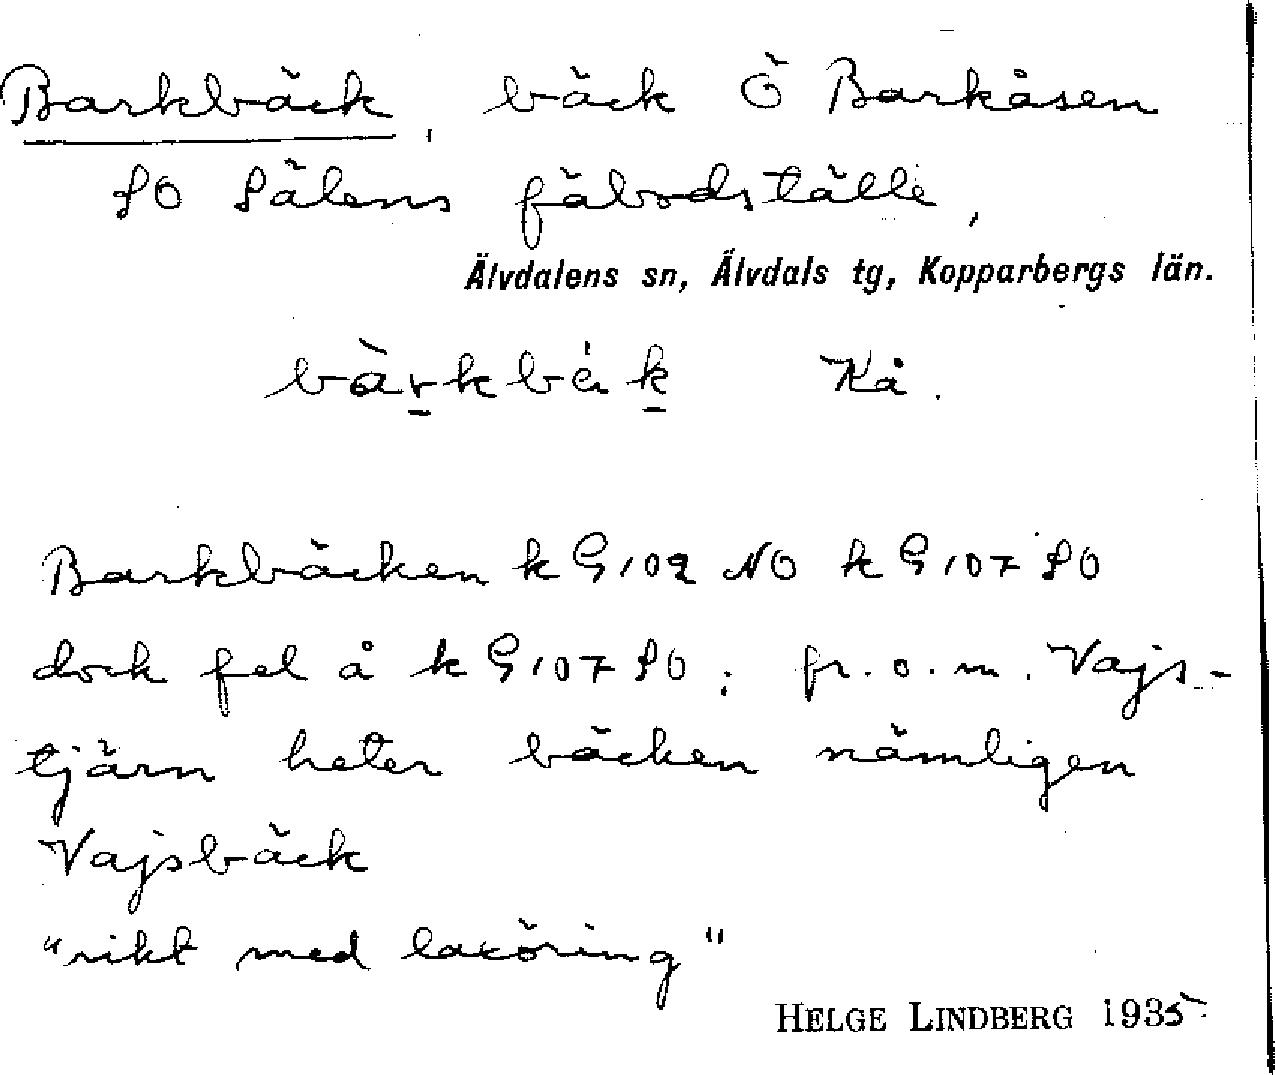 Barkbäck, bäck Ö Barkåsen
SO Sälens fäbodställe,
Älvdalens sn, Älvdals tg, Kopparbergs län.
bàrkbä́k Kå.
Barkbäcken k G 102 NO k G 107 SO
dock fel å k G 107 SO; fr.o.m. Vajs-
tjärn heter bäcken nämligen
Vajsbäck
"rikt med laxöring"
HELGE LINDBERG 1935